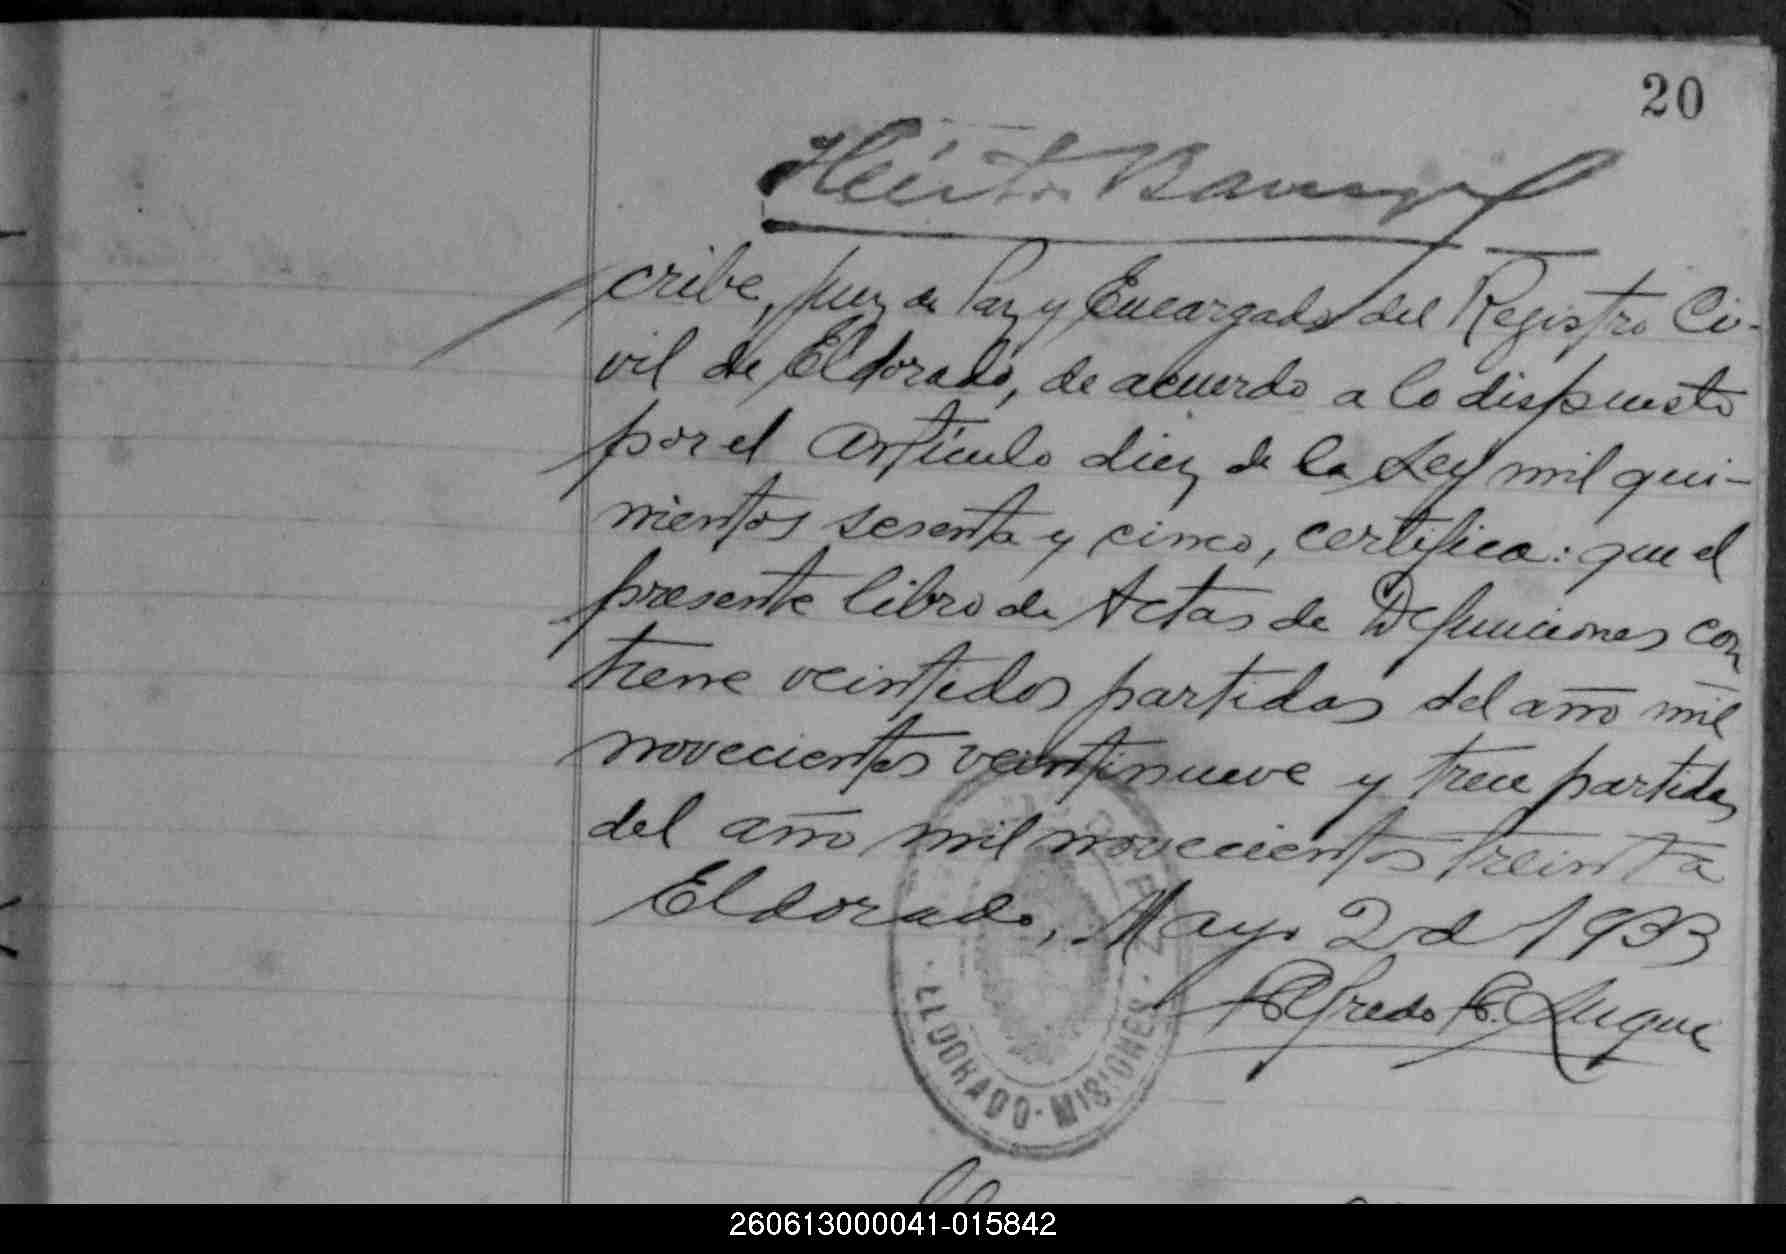 20
Héctor Barreyro
cribe, Juez de Paz y Encargado del Registro Ci-
vil de Eldorado, de acuerdo a lo dispuesto
por el artículo diez de la Ley mil qui-
nientos sesenta y cinco, certifica: que el
presente libro de Actas de Defunciones con
tiene veintidos partidas del año mil
novecientos veintinueve y trece partidas
del año mil novecientos treinta
Eldorado, Mayo 2 d 1933
Alfredo A. Luque
ELDORADO · MISIONES ·
260613000041-015842